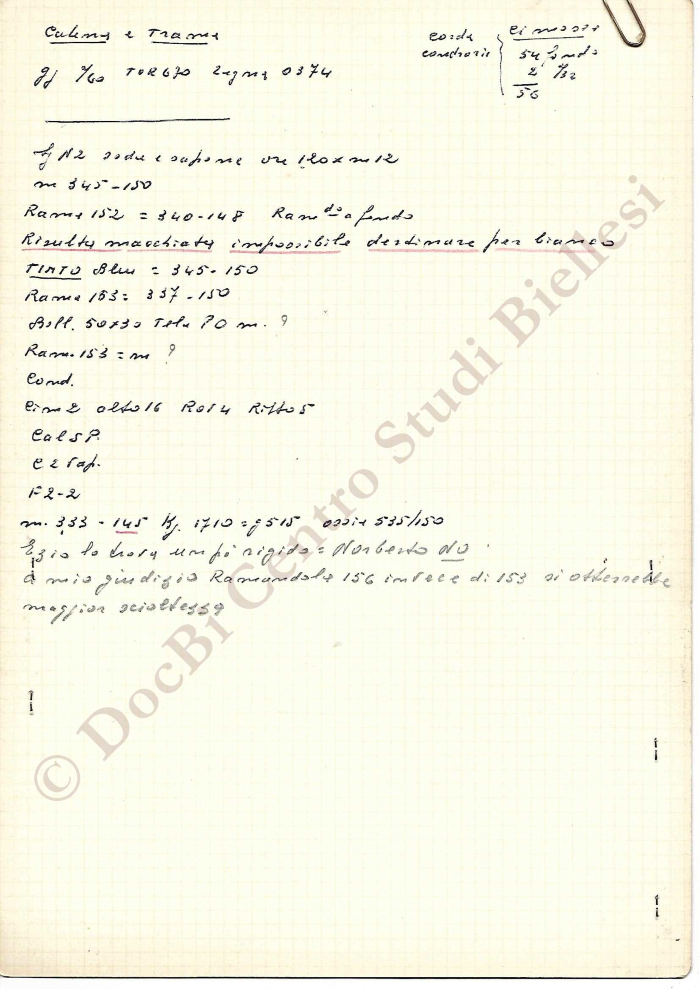 Catena e Trama
corde Cimosse
contrarie 54 fondo
2
56
TOR 630 Legna 0374
N2 soda e sapone ore 120 x m 12
m 345-150
Rama 152 = 340-148 Ram do a fondo
Risulta macchiata impossibile destinare per bianco
TINTO Blu = 345-150
Rama 153 = 337-150
Boll. 50x30 Tela PO m. ?
Ram. 153 = m ?
Cond.
Cim 2 alto 16 Rot 4 Ritto 5
Cal S P.
C 2 Vap.
F2-2
m. 333 - 145 Kg. 1710 = g 515 ossia 535/150
Ezio la trova un pò rigida = Norberto NO
a mio giudizio Ramandola 156 invece di 153 si otterrebbe
maggior scioltezza
© DocBi Centro Studi Biellesi